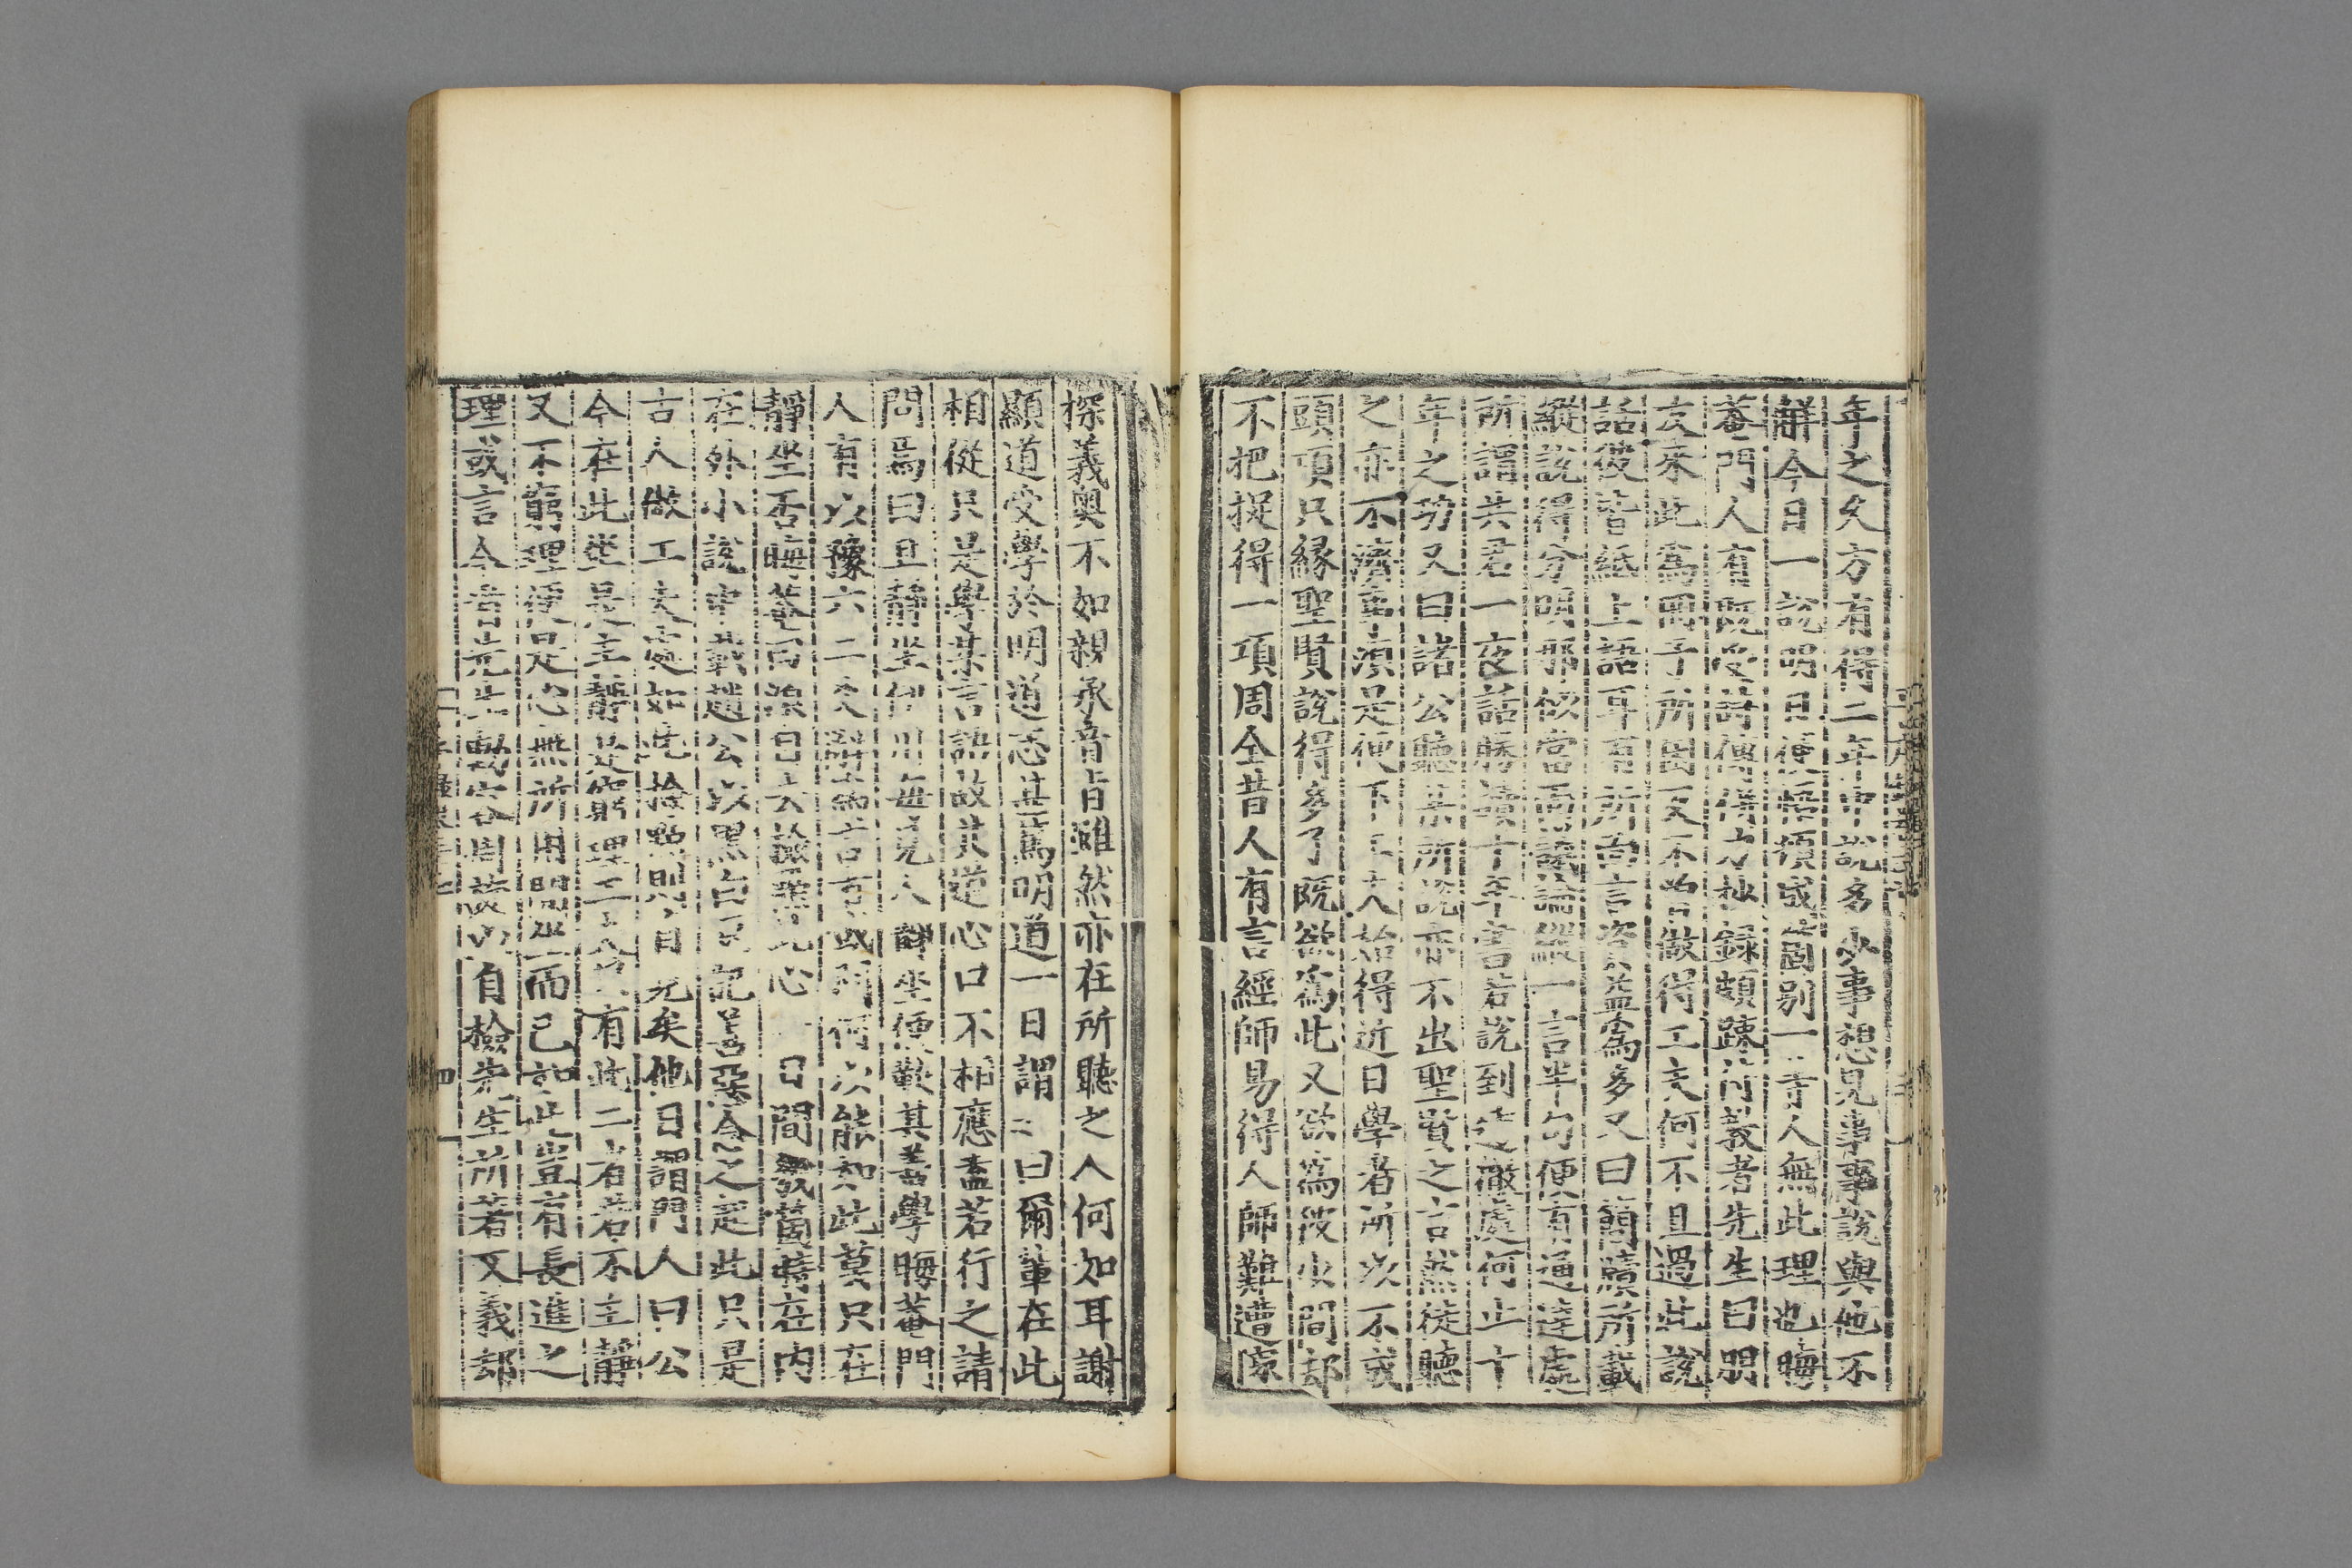 年之久方有得二年中說多少事想見事事說與他不
解今日一說明日便悟頓成箇别一等人無此理也晦
菴門人有既受詩傳併力抄録頗踈衍義者先生曰朋
友來此爲用予所困又不曾做得工夫何不且過此說
話彼皆紙上語耳有所面言資益爲多又曰簡牘所載
縱說得分明那似當面議論縱一言半句便有通達處
所謂共君一夜話勝讀十年書若說到透徹處何止十
年之功又曰諸公聽某所說亦不出聖賢之言然徒聽
之亦不濟事須是便下工夫始得近日學者所以不成
頭項只縁聖賢說得多了既欲爲此又欲爲彼少間却
不把捉得一項周全昔人有言經師易得人師難遭
探義奧不如親承音旨雖然亦在所聽之人何如耳謝
顯道受學於明道志甚篤明道一日謂之曰爾輩在此
相從只是學某言語故其道心口不相應盍若行之請
問焉曰且靜坐伊川每見人靜坐便歎其善學晦菴門
人有以豫六二爻辭爲言有或問何以能如此莫只在
靜坐否晦菴曰須日去檢點此心一日間幾箇時在内
在外小說中載趙公以黑白豆記善惡念之起此只是
古人做工夫處如此檢點則自見矣他日謂門人曰公
今在此坐是主靜是窮理工夫只有此二者若不主靜
又不窮理便是心無所用閑坐而已如此豈有長進之
理或言今昔先生自檢先生所著文義却